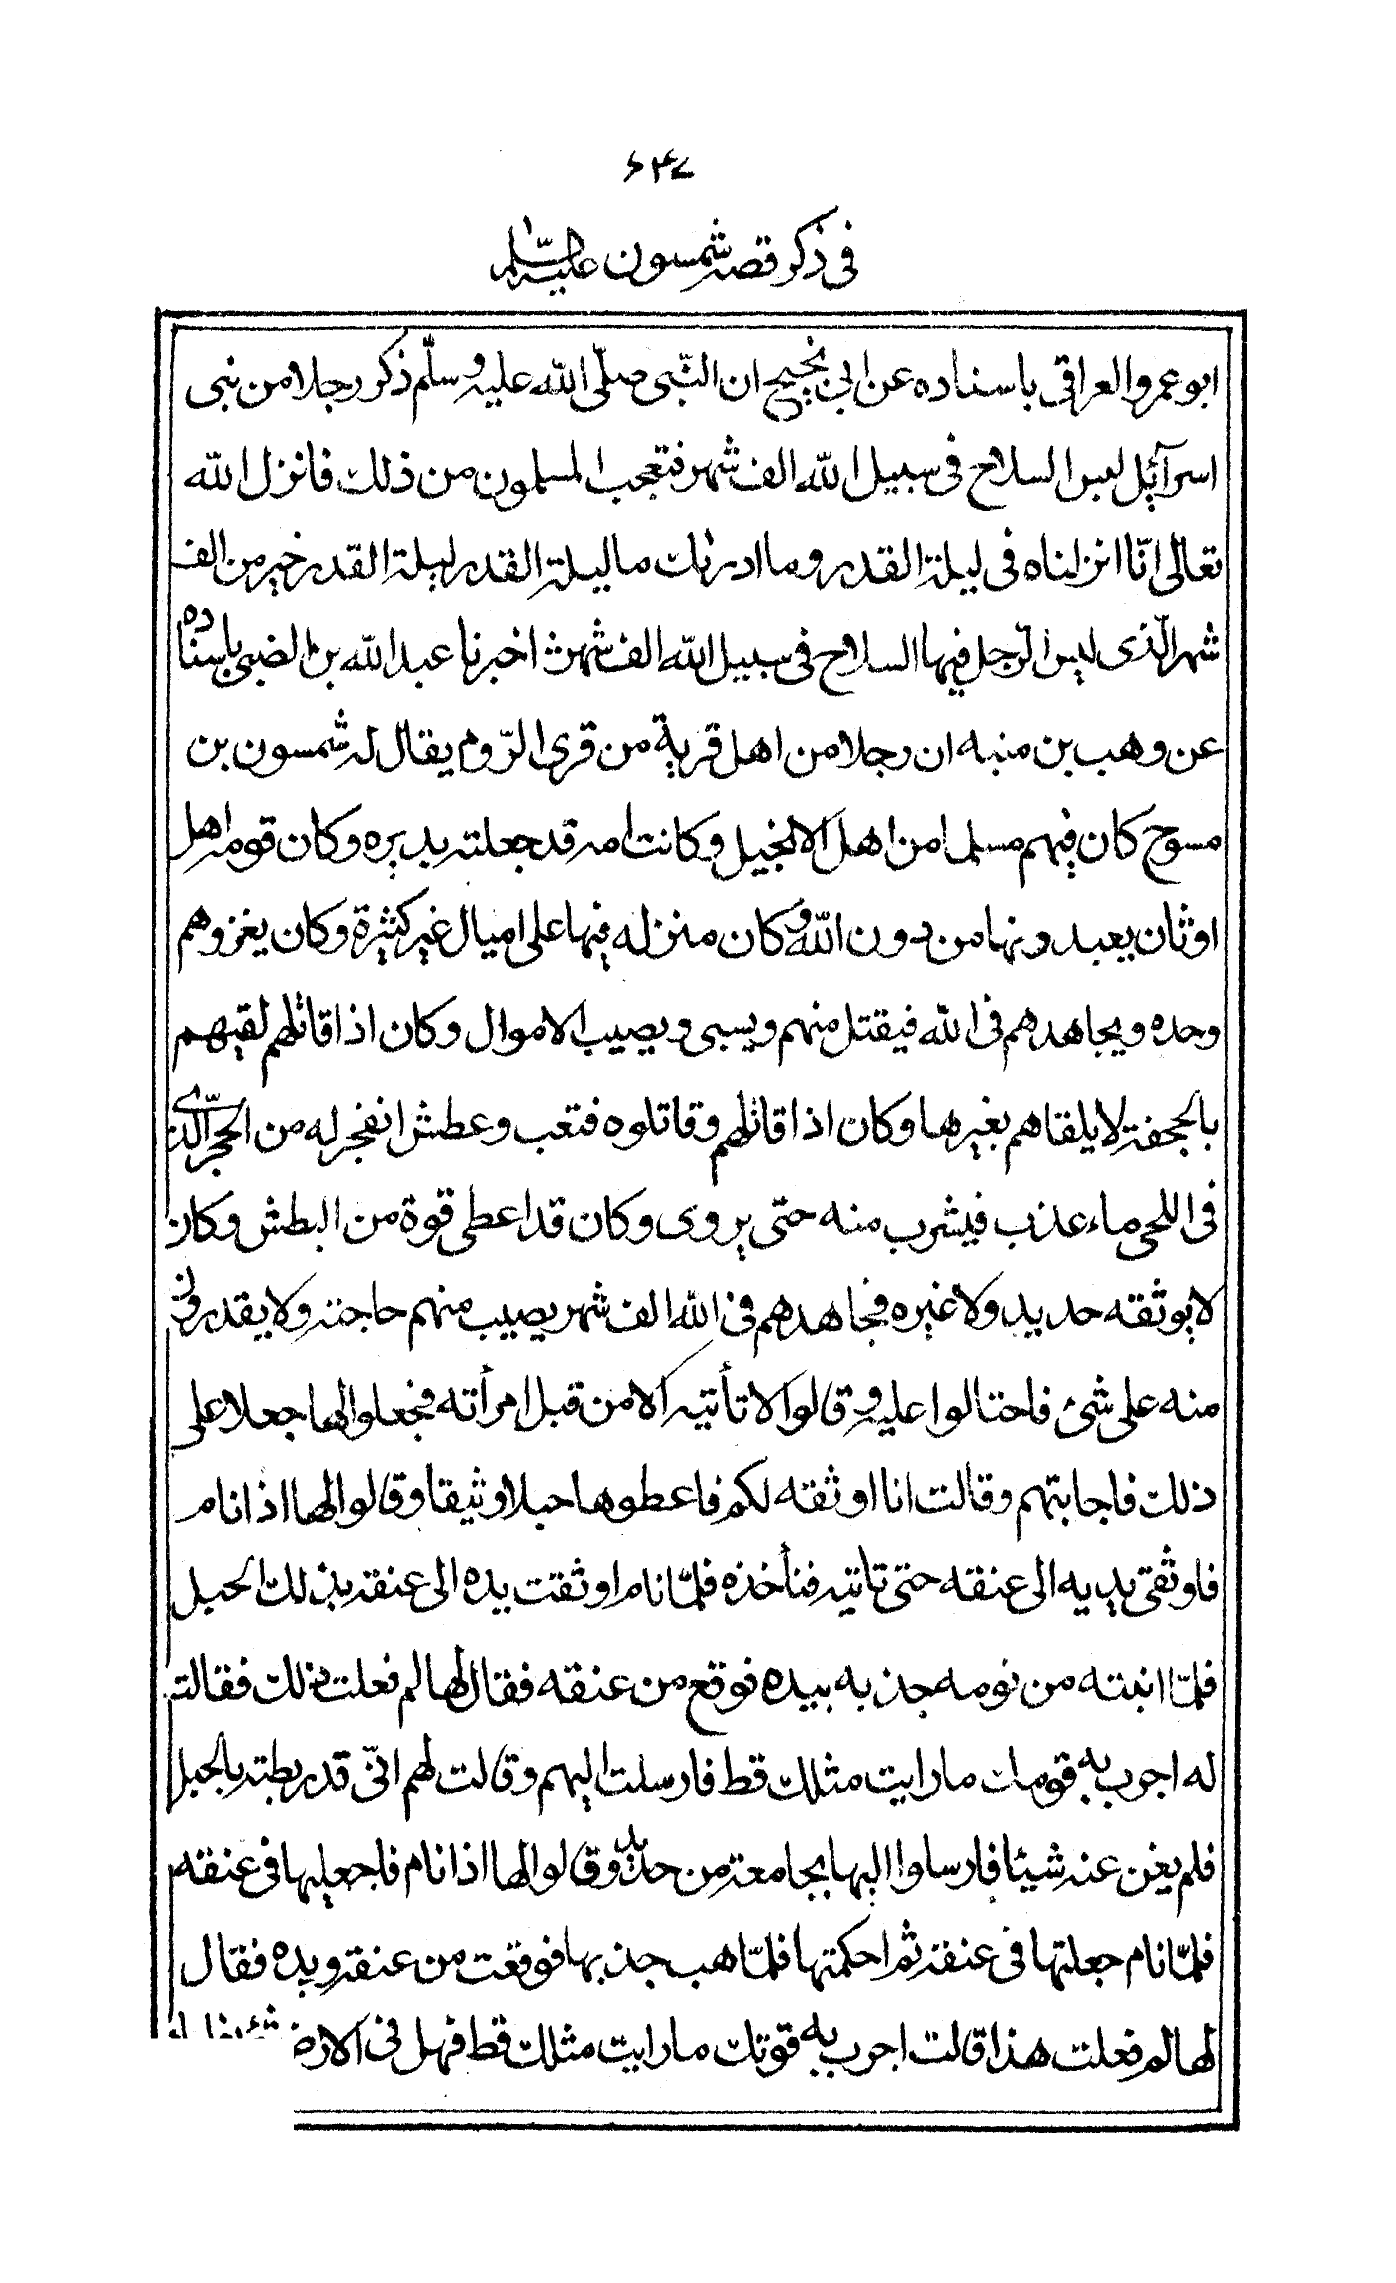 ۶۴۷
فى ذكر قصة شمسون عليه السّلم
ابو عمرو العراقى باسناده عن ابى نجيح ان النّبى صلّى الله عليه وسلّم ذكر رجلا من نبى
اسرآئيل لبس السلاح فى سبيل الله الف شهر فتعجب المسلمون من ذلك فانزل الله
تعالى انّا انزلناه فى ليلة القدر وما ادريك ما ليلة القدر ليلة القدر خير من الف
شهر الّذى لبس الرّجل فيها السلاح فى سبيل الله الف شهر اخبرنا عبد الله بن الضبى باسناده
عن وهب بن منبه ان رجلا من اهل قرية من قرى الرّوم يقال له شمسون بن
مسوح كان فيهم مسلما من اهل الانجيل وكانت امه قد جعلته يديره وكان قومه اهل
اوثان يعبدونها من دون الله وكان منزله فيها على اميال غير كثيرة وكان يغزوهم
وحده ويجاهدهم فى الله فيقتل منهم ويسبى ويصيب الاموال وكان اذا قاتلهم لقيهم
بالحجفة لا يلقاهم بغيرها وكان اذا قاتلهم وقاتلوه فتعب وعطش انفجر له من الحجر الّذى
فى اللحى ماء عذب فيشرب منه حتّى يروى وكان قد اعطى قوة من البطش وكان
لا يوثقه حديد ولا غيره فجاهدهم فى الله الف شهر يصيب منهم حاجته ولا يقدرون
منه على شئ فاحتالوا عليه وقالوا لا تأتيه الا من قبل امرأته فجعلوا لها جعلا على
ذلك فاجابتهم وقالت انا اوثقه لكم فاعطوها حبلا وثيقا وقالوا لها اذا نام
فاوثقى يديه الى عنقه حتى تاتيه فنأخذه فلمّا نام اوثقت يده الى عنقه بذلك الحبل
فلمّا انبته من نومه جذبه بيده فوقع من عنقه فقال لها لم فعلت ذلك فقالت
له اجرب به قوتك ما رايت مثلك قط فارسلت اليهم وقالت لهم انّى قد ربطته بالحبل
فلم يغن عنه شيئا فارسلوا اليها بجامعة من حديد وقالوا لها اذا نام فاجعليها فى عنقه
فلمّا نام جعلتها فى عنقه ثم احكمتها فلمّا هب جذبها فوقعت من عنقه ويده فقال
لها لم فعلت هذا قالت اجرب به قوتك ما رايت مثلك قط فهل فى الارض